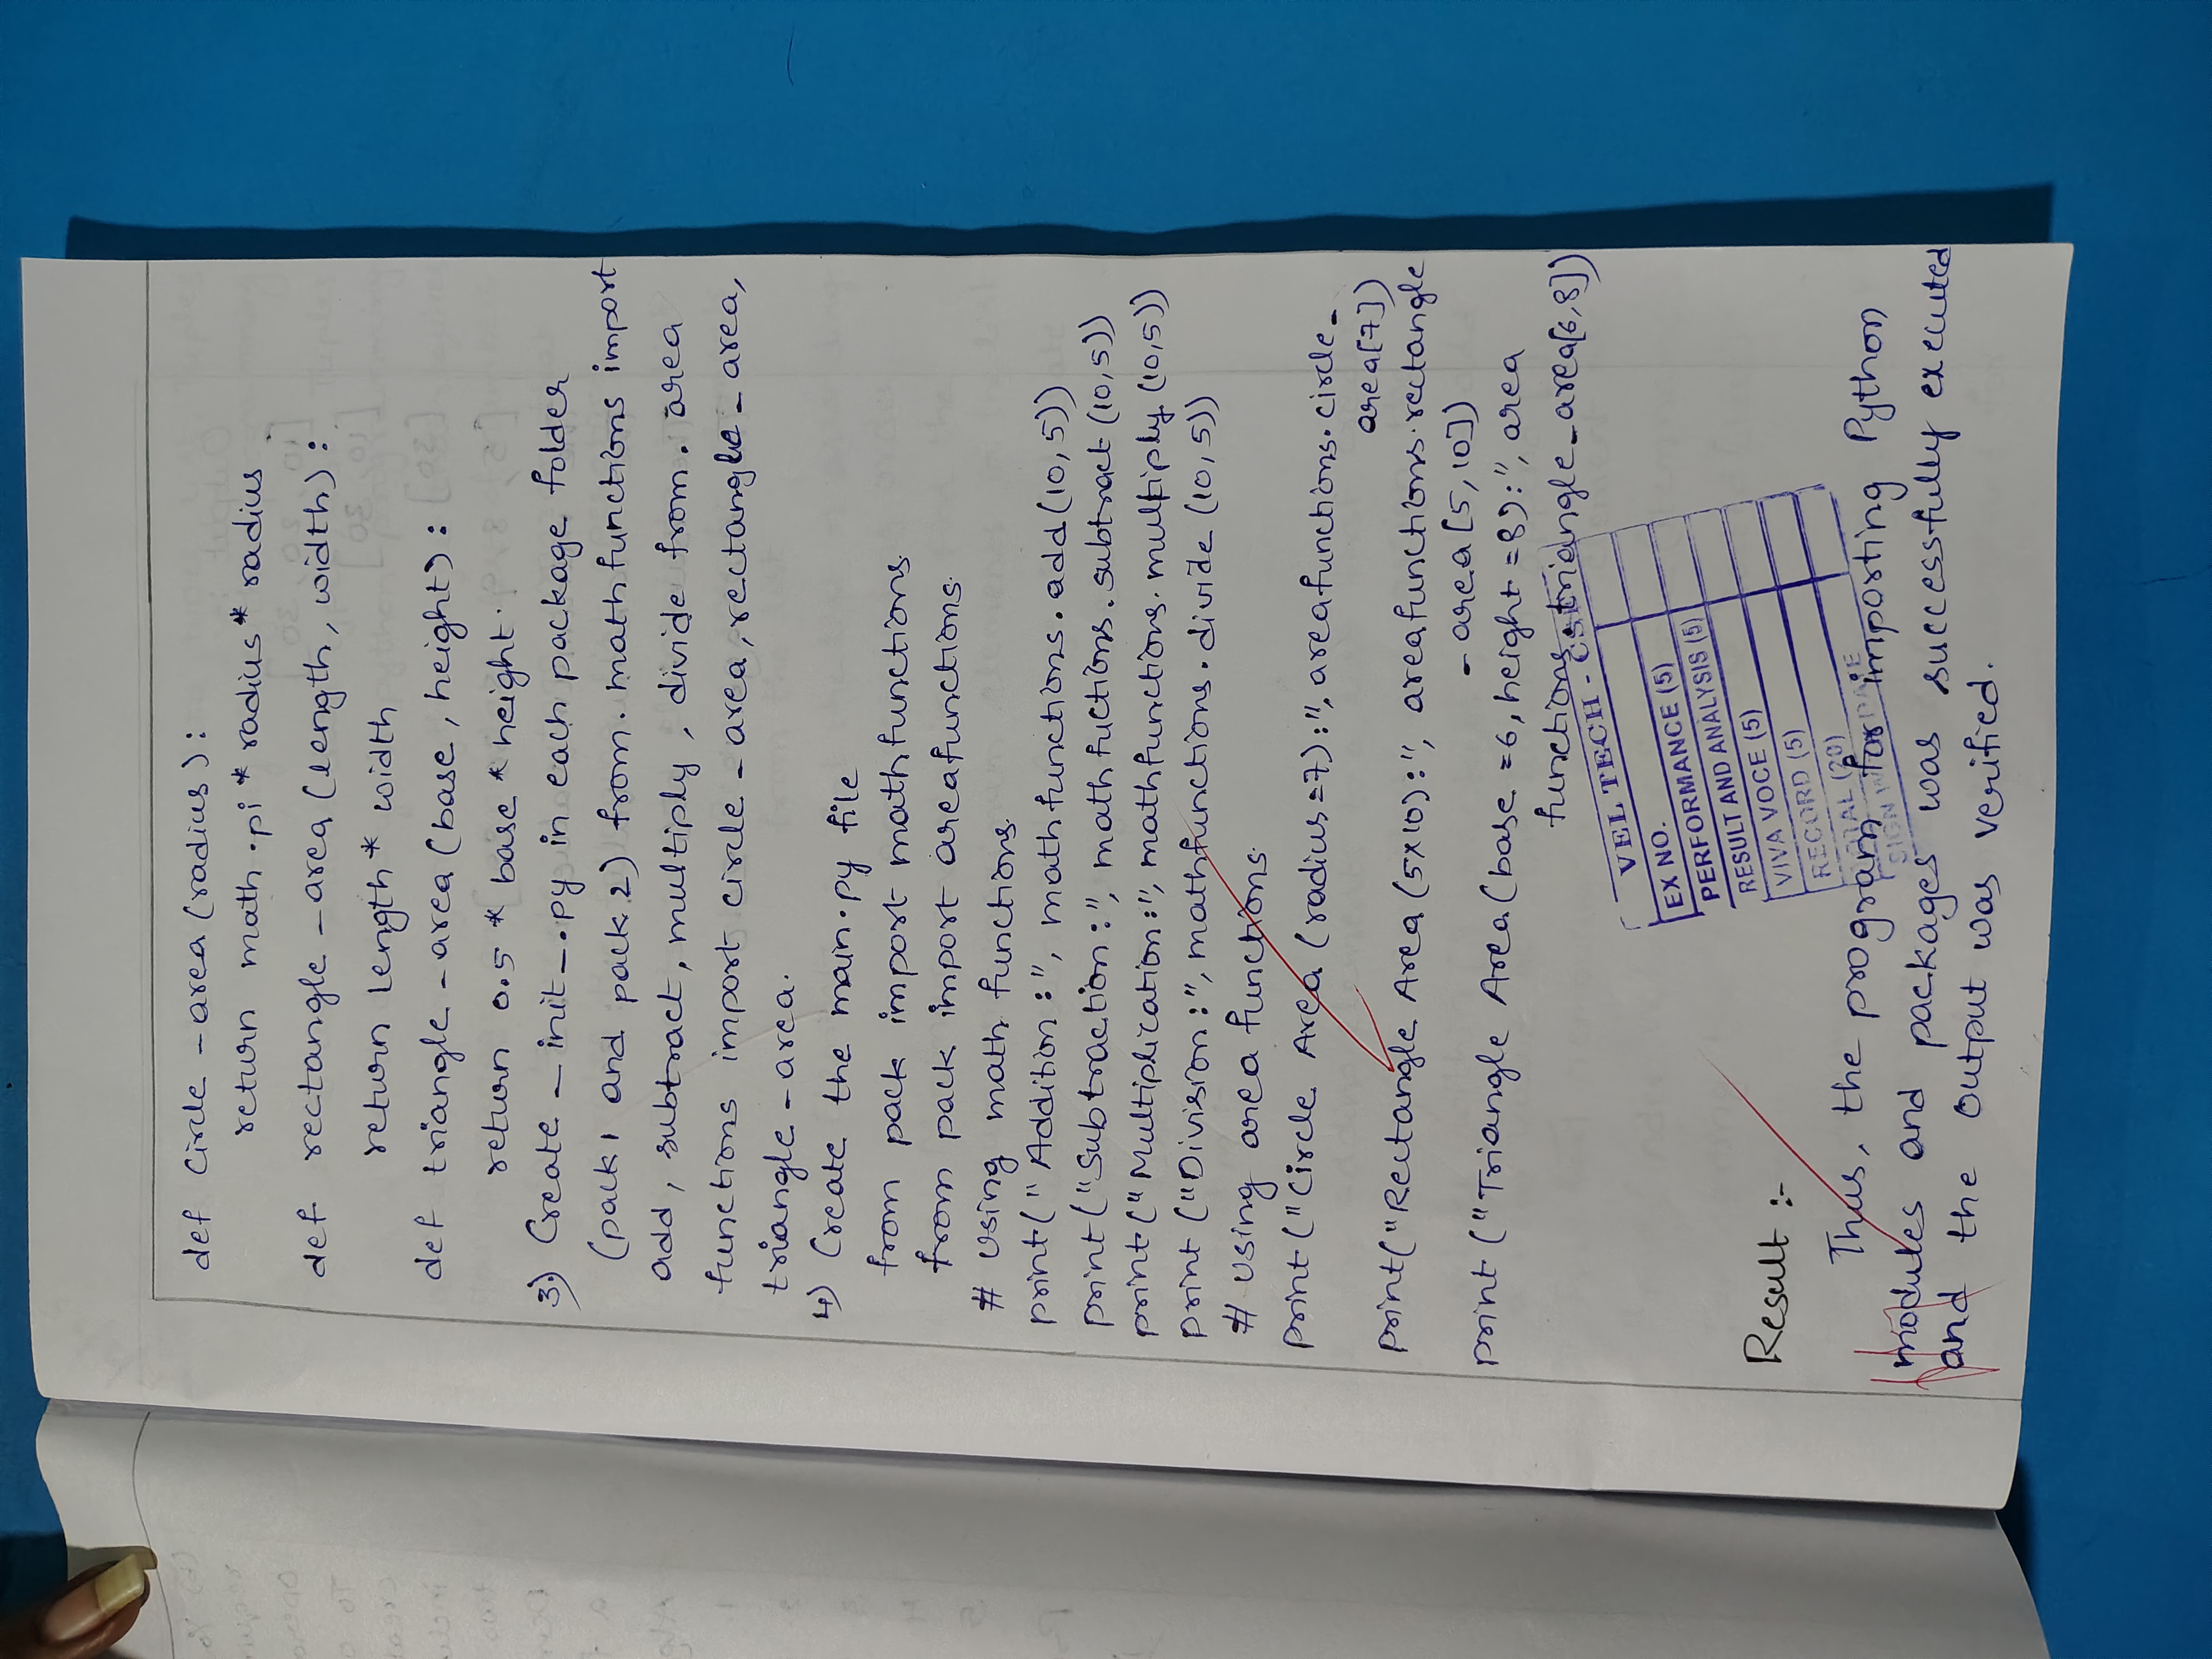 def Circle _ area (radius) :
return math .pi * radius * radius
def rectangle _ area (length, width) :
return Length * width
def triangle _ area (base, height) :
return 0.5 * base * height.
3.) Create _ init _.py in each package folder
(pack1 and pack 2) from. mathfunctions import
add, subtract, multiply, divide from. area
functions import circle _ area, rectangle _ area,
triangle _ area.
4) Create the main.py file
from pack import mathfunctions.
from pack import areafunctions.
# Using math functions.
print(" Addition :", mathfunctions.add(10,5))
print("Subtraction :", mathfuctions.subtract (10,5))
print("Multiplication :", mathfunctions.multiply (10,5))
print ("Division :", mathfunctions.divide (10,5))
# using area functions.
print ("Circle Area (radius=7) :", areafunctions.circle_
area[7])
print("Rectangle Area (5x10) :", areafunctions.rectangle
_ area [5,10])
print ("Triangle Area (base =6, height =8) :", area
functions.triangle_area[6,8])
VEL TECH - CSE
EX NO.
PERFORMANCE (5)
RESULT AND ANALYSIS (5)
VIVA VOCE (5)
RECORD (5)
TOTAL (20)
SIGN DATE
Result :-
Thus, the program for importing Python
modules and packages was successfully executed
and the output was verified.